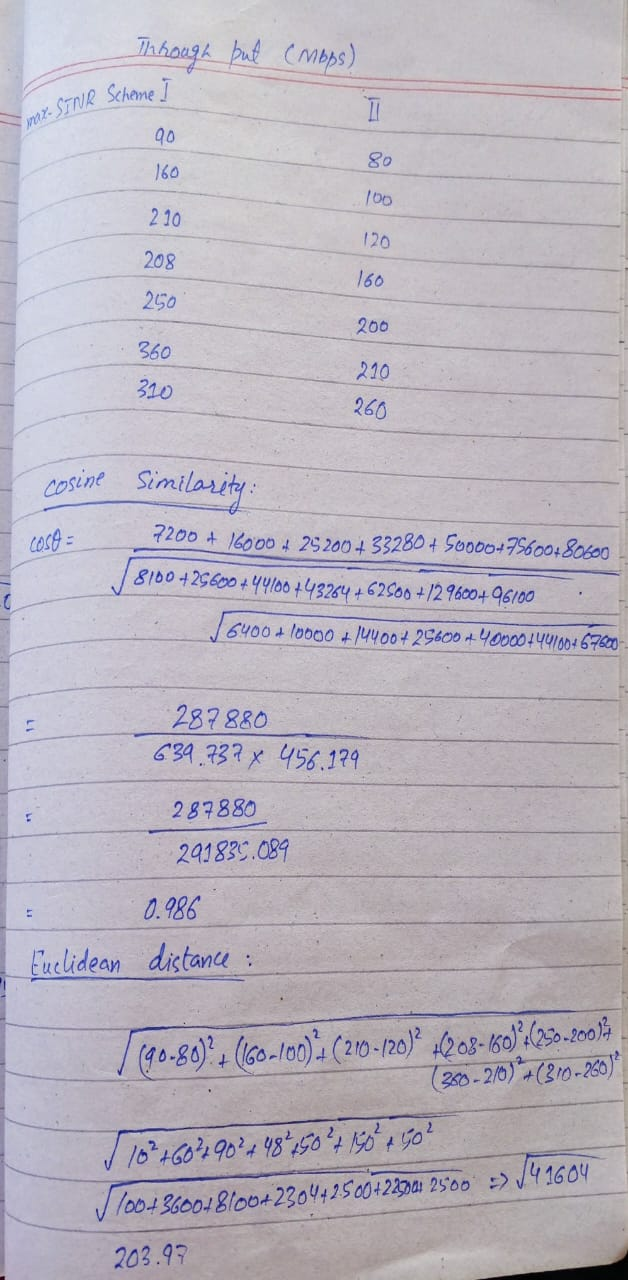 Through put (Mbps)
max-SINR Scheme I II
90 80
160 100
210 120
208 160
250 200
360 210
310 260
Cosine Similarity:
cosθ = 7200 + 16000 + 25200 + 33280 + 50000 + 75600 + 80600
√8100 + 25600 + 44100 + 43264 + 62500 + 129600 + 96100
√6400 + 10000 + 14400 + 25600 + 40000 + 44100 + 67600
= 287880
639.737 × 456.179
= 287880
291835.089
= 0.986
Euclidean distance :
√(90-80)² + (160-100)² + (210-120)² + (208-160)² + (250-200)² +
(360-210)² + (310-260)²
√10² + 60² + 90² + 48² + 50² + 150² + 50²
√100 + 3600 + 8100 + 2304 + 2500 + 22500 + 2500 => √41604
203.97